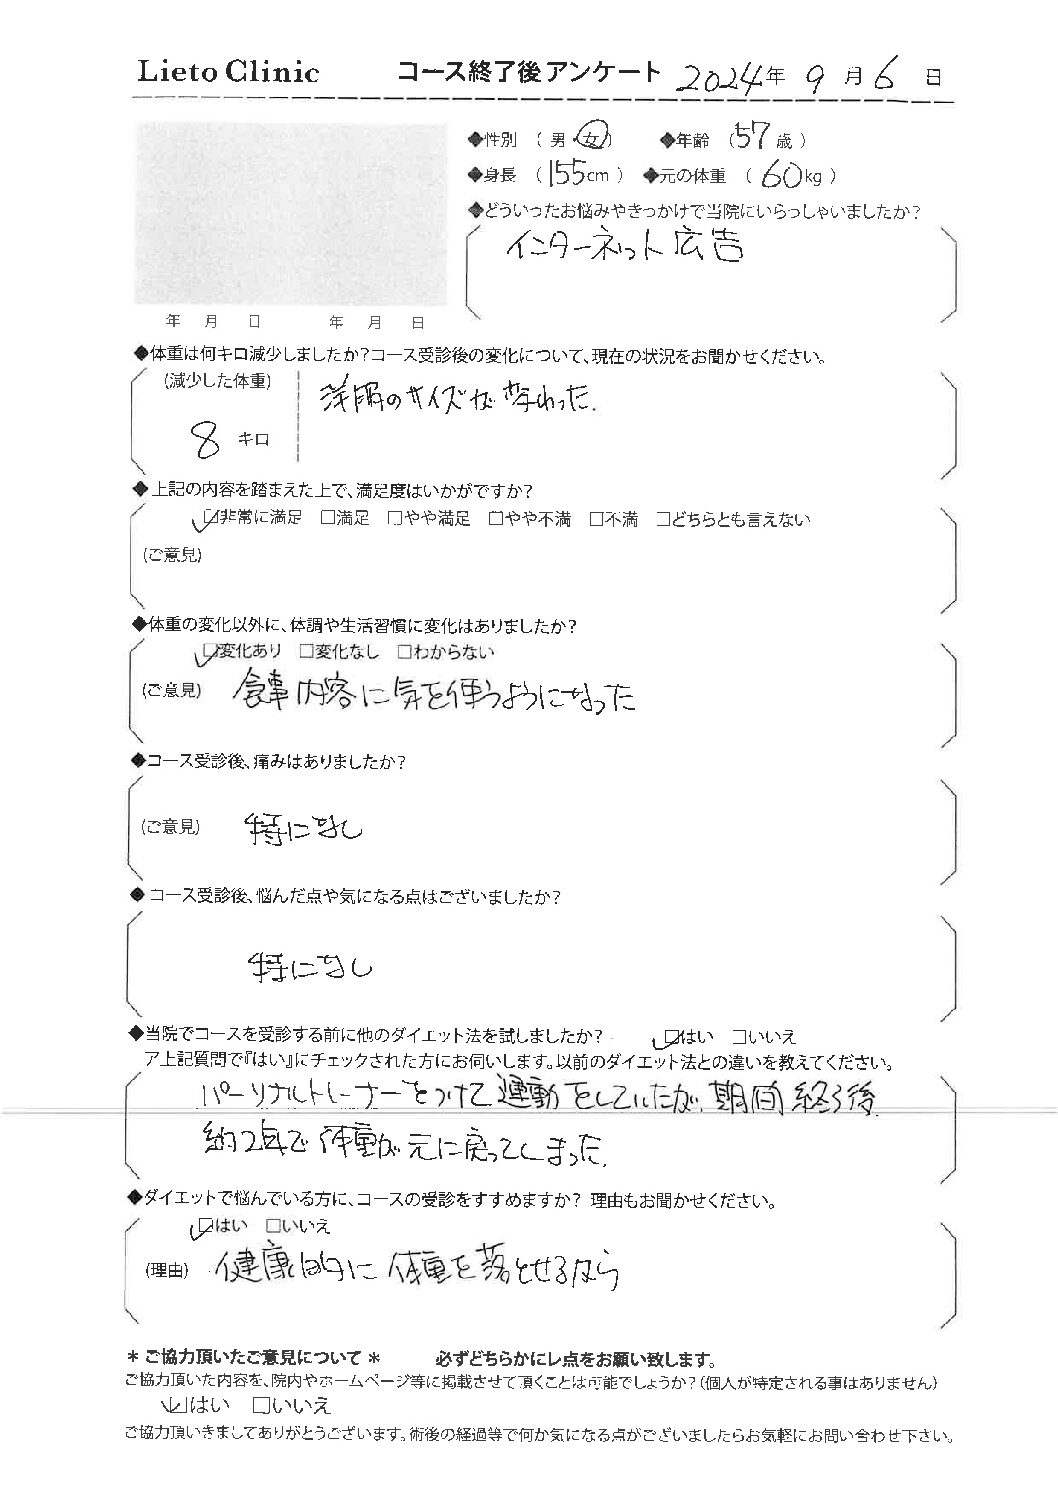 Lieto Clinic コース終了後アンケート 2024年 9月 6日
◆性別 ( 男・女 ) ◆年齢 ( 57歳 )
◆身長 ( 155cm ) ◆元の体重 ( 60kg )
◆どういったお悩みやきっかけで当院にいらっしゃいましたか?
インターネット広告
年 月 日 年 月 日
◆体重は何キロ減少しましたか?コース受診後の変化について、現在の状況をお聞かせください。
(減少した体重) 洋服のサイズが変わった.
8 キロ
◆上記の内容を踏まえた上で、満足度はいかがですか?
☑非常に満足 □満足 □やや満足 □やや不満 □不満 □どちらとも言えない
(ご意見)
◆体重の変化以外に、体調や生活習慣に変化はありましたか?
☑変化あり □変化なし □わからない
(ご意見) 食事内容に気を使うようになった
◆コース受診後、痛みはありましたか?
(ご意見) 特になし
◆コース受診後、悩んだ点や気になる点はございましたか?
特になし
◆当院でコースを受診する前に他のダイエット法を試しましたか? ☑はい □いいえ
ア上記質問で『はい』にチェックされた方にお伺いします。以前のダイエット法との違いを教えてください。
パーソナルトレーナーをつけて運動をしていたが、期間終了後
約2年で体重が元に戻ってしまった.
◆ダイエットで悩んでいる方に、コースの受診をすすめますか? 理由もお聞かせください。
☑はい □いいえ
(理由) 健康的に体重を落とせるなら
＊ご協力頂いたご意見について＊ 必ずどちらかにレ点をお願い致します。
ご協力頂いた内容を、院内やホームページ等に掲載させて頂くことは可能でしょうか?(個人が特定される事はありません)
☑はい □いいえ
ご協力頂いきましてありがとうございます。術後の経過等で何か気になる点がございましたらお気軽にお問い合わせ下さい。